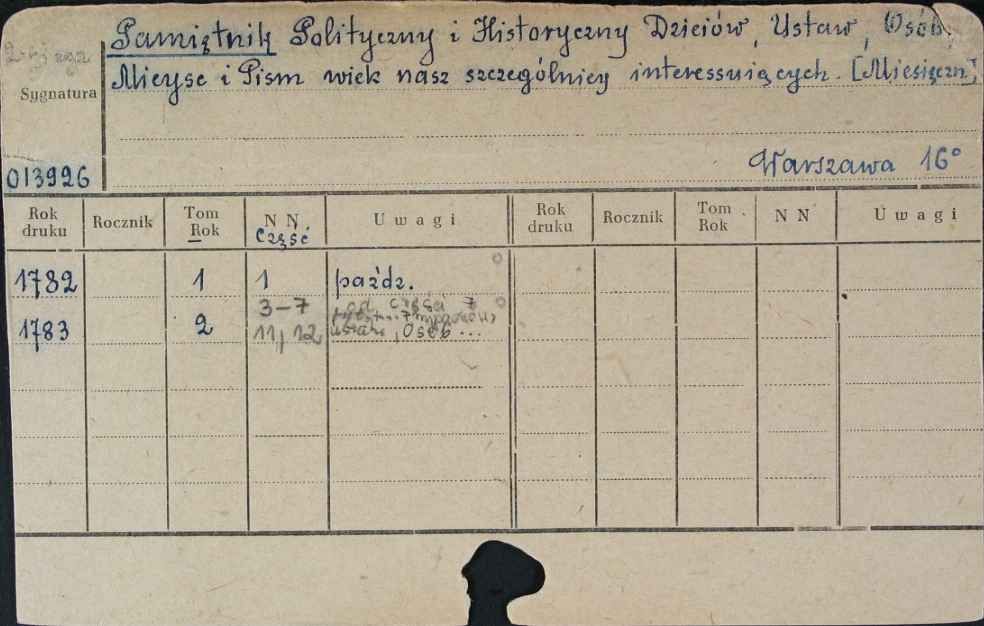 Pamiętnik Polityczny i Historyczny Dzieiów, Ustaw, Osób,
Mieysc i Pism wiek nasz szczególniey interessuiących. [Miesięczn]
Sygnatura
013926
Warszawa 16°
Rok druku Rocznik Tom Rok N N Część Uwagi Rok druku Rocznik Tom Rok N N Uwagi
1782 1 1 paźdz.
3-7 od części 7
1783 2 11, 12 ustaw, Osób ...